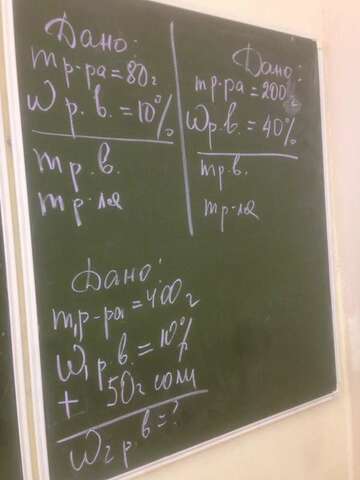 Дано:
mр-ра = 80г
Wр.в. = 10%
mр.в.
mр-ля
Дано:
mр-ра = 200г
Wр.в. = 40%
mр.в.
mр-ля
Дано:
m₁р-ра = 400г
W₁р.в. = 10%
+ 50г соли
W₂р.в = ?